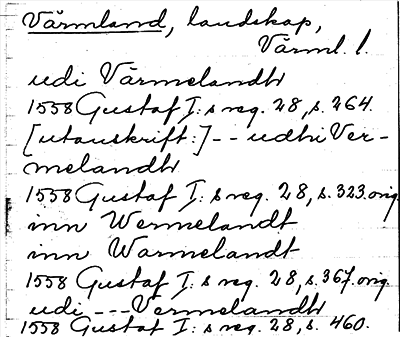 Värmland, landskap,
Värml. l.
udi Värmelandh
1558 Gustaf I: s reg. 28, s. 264.
[utanskrift:] - - udhi Ver-
melandh
1558 Gustaf I: s reg. 28, s. 323. orig.
inn Wermelandt
inn Warmelandt
1558 Gustaf I: s reg. 28, s. 367. orig.
udi - - - Vermelandh
1558 Gustaf I: s reg. 28, s. 460.